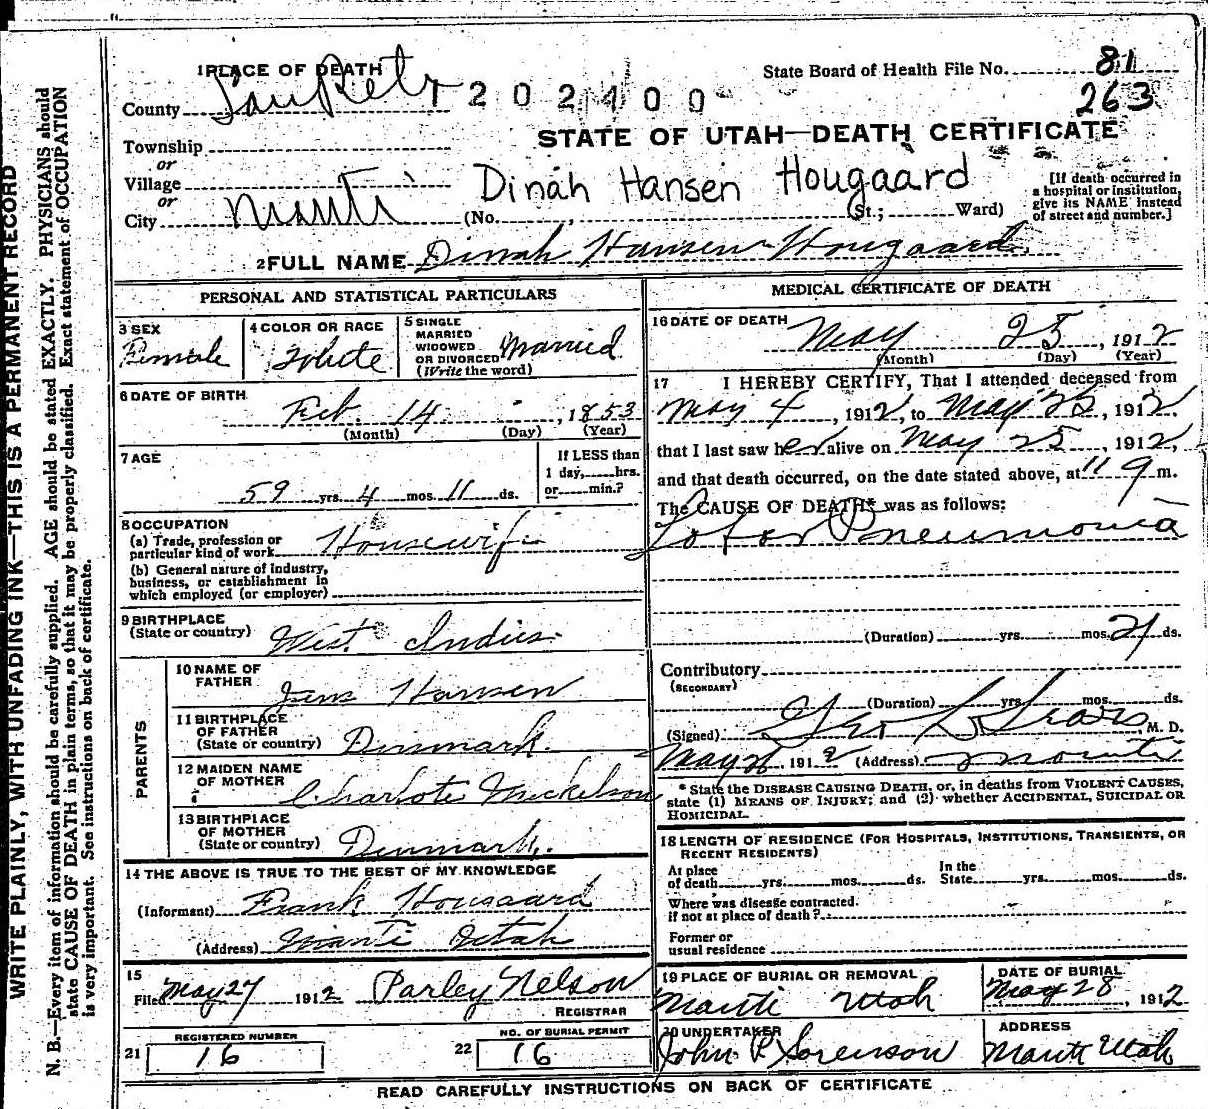 1 PLACE OF DEATH
County SanPete
1202400
State Board of Health File No. 81
263
STATE OF UTAH—DEATH CERTIFICATE
Township
or
Village
or
City Manti
Dinah Hansen Hougaard
(No. , (St.; Ward)
[If death occurred in a hospital or institution, give its NAME instead of street and number.]
2 FULL NAME Dinah Hansen Hougaard
PERSONAL AND STATISTICAL PARTICULARS
3 SEX
Female
4 COLOR OR RACE
White
5 SINGLE
MARRIED
WIDOWED
OR DIVORCED
(Write the word)
Married
6 DATE OF BIRTH
Feb. 14 , 1853
(Month) (Day) (Year)
7 AGE
59 yrs. 4 mos. 11 ds.
If LESS than
1 day, hrs.
or min.?
8 OCCUPATION
(a) Trade, profession or
particular kind of work Housewife
(b) General nature of industry,
business, or establishment in
which employed (or employer)
9 BIRTHPLACE
(State or country) West Indies
PARENTS
10 NAME OF
FATHER
Jens Hansen
11 BIRTHPLACE
OF FATHER
(State or country) Denmark.
12 MAIDEN NAME
OF MOTHER
Charlote Mickelson
13 BIRTHPLACE
OF MOTHER
(State or country) Denmark.
14 THE ABOVE IS TRUE TO THE BEST OF MY KNOWLEDGE
(Informant) Frank Hougaard
(Address) Manti Utah
15
Filed May 27 1912 Parley Nelson
REGISTRAR
REGISTERED NUMBER
21 16
NO. OF BURIAL PERMIT
22 16
MEDICAL CERTIFICATE OF DEATH
16 DATE OF DEATH
May 25 , 1912
(Month) (Day) (Year)
17 I HEREBY CERTIFY, That I attended deceased from
May 4 , 1912, to May 25, 1912,
that I last saw her alive on May 25 , 1912,
and that death occurred, on the date stated above, at 11 9 m.
The CAUSE OF DEATH* was as follows:
Lobar Pneumonia
(Duration) yrs. mos. 21 ds.
Contributory
(SECONDARY)
(Duration) yrs. mos. ds.
(Signed) Geo L Sears, M. D.
May 191 2 (Address) Manti
* State the DISEASE CAUSING DEATH, or, in deaths from VIOLENT CAUSES,
state (1) MEANS OF INJURY; and (2) whether ACCIDENTAL, SUICIDAL OR
HOMICIDAL.
18 LENGTH OF RESIDENCE (FOR HOSPITALS, INSTITUTIONS, TRANSIENTS, OR
RECENT RESIDENTS)
At place
of death yrs. mos. ds.
In the
State yrs. mos. ds.
Where was disease contracted,
if not at place of death?
Former or
usual residence
19 PLACE OF BURIAL OR REMOVAL
Manti Utah
DATE OF BURIAL
May 28 , 1912
20 UNDERTAKER
John P. Sorenson
ADDRESS
Manti Utah
READ CAREFULLY INSTRUCTIONS ON BACK OF CERTIFICATE
WRITE PLAINLY, WITH UNFADING INK—THIS IS A PERMANENT RECORD
N. B.—Every item of information should be carefully supplied. AGE should be stated EXACTLY. PHYSICIANS should
state CAUSE OF DEATH in plain terms, so that it may be properly classified. Exact statement of OCCUPATION
is very important. See instructions on back of certificate.